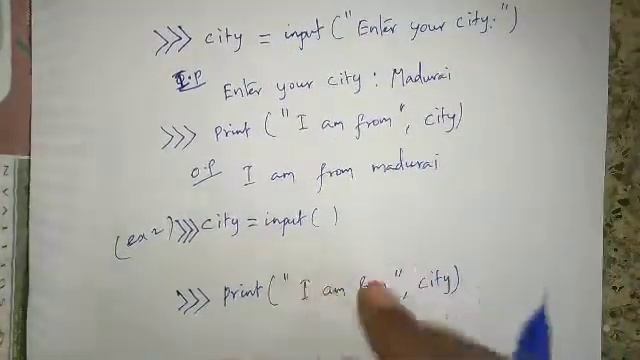 >>> city = input ("Enter your city:")
I.P Enter your city : Madurai
>>> Print ("I am from", city)
O.P I am from madurai
(ex 2) >>> city = input ( )
>>> print ("I am ", city)